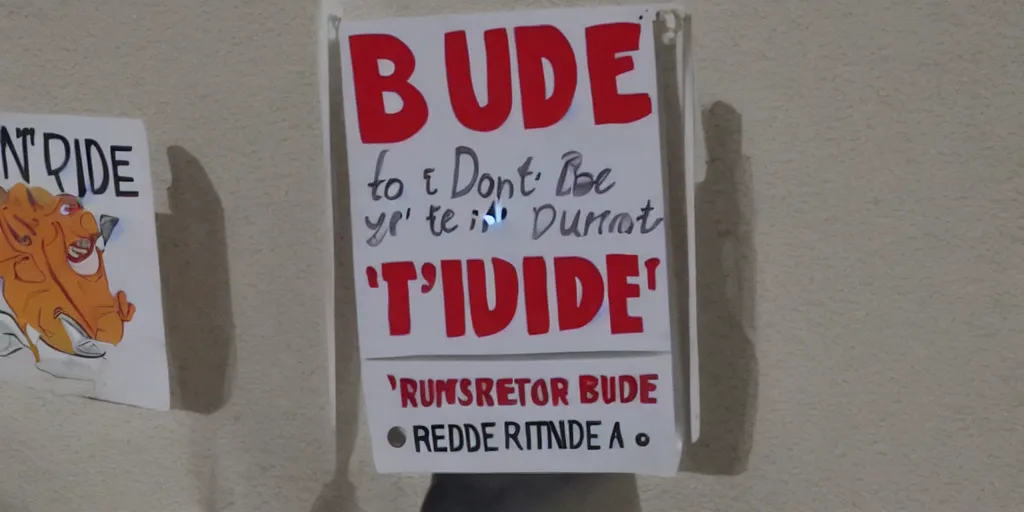 N'T RIDE
BUDE
to i Dont. Be
yr' te in Durrnt
'T'IUIDE'
'RUNSRETOR BUDE
REDDE RITNDE A